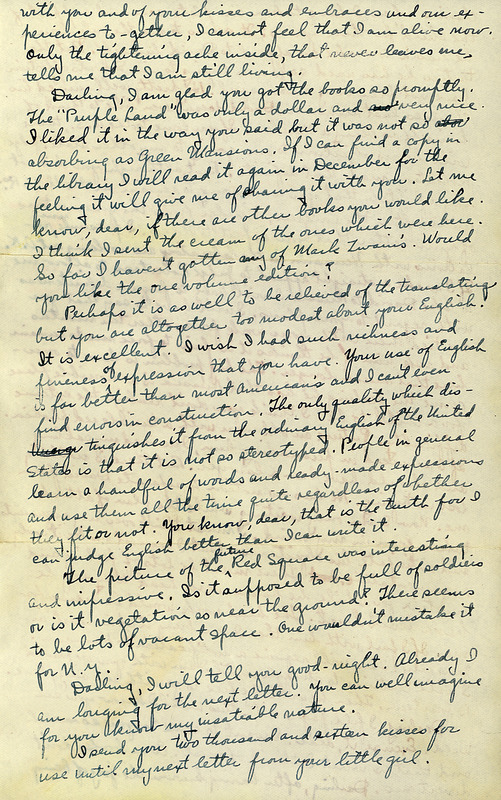 with you and of your kisses and embraces and our ex-
periences to-gether, I cannot feel that I am alive now.
Only the tightening ache inside, that never leaves me,
tells me that I am still living.
Darling, I am glad you got the books so promptly.
The "Purple Land" was only a dollar and no very nice.
I liked it in the way you said but it was not so
absorbing as Green Mansions. If I can find a copy in
the library I will read it again in December for the
feeling it will give me of sharing it with you. Let me
know, dear, if there are other books you would like.
I think I sent the cream of the ones which were here.
So far I haven't gotten any of Mark Twain's. Would
you like the one volume edition?
Perhaps it is as well to be relieved of the translating
but you are altogether too modest about your English.
It is excellent. I wish I had such richness and
fineness of expression that you have. Your use of English
is far better than most Americans and I can't even
find errors in construction. The only quality which dis-
tinguishes it from the ordinary English of the United
States is that it is not so stereotyped. People in general
learn a handful of words and ready-made expressions
and use them all the time quite regardless of whether
they fit or not. You know, dear, that is the truth for I
can judge English better than I can write it.
The picture of the future Red Square was interesting
and impressive. Is it supposed to be full of soldiers
or is it vegetation so near the ground? There seems
to be lots of vacant space. One wouldn't mistake it
for N.Y.
Darling, I will tell you good-night. Already I
am longing for the next letter. You can well imagine
for you know my insatiable nature.
I send you two thousand and sixteen kisses for
use until my next letter from your little girl.